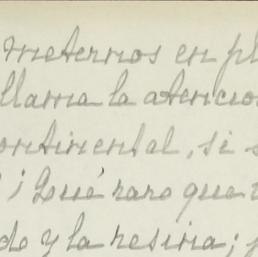 meternos en pl
llama la atencio
ontinental, si s
¡Qué raro que
do y la resina;